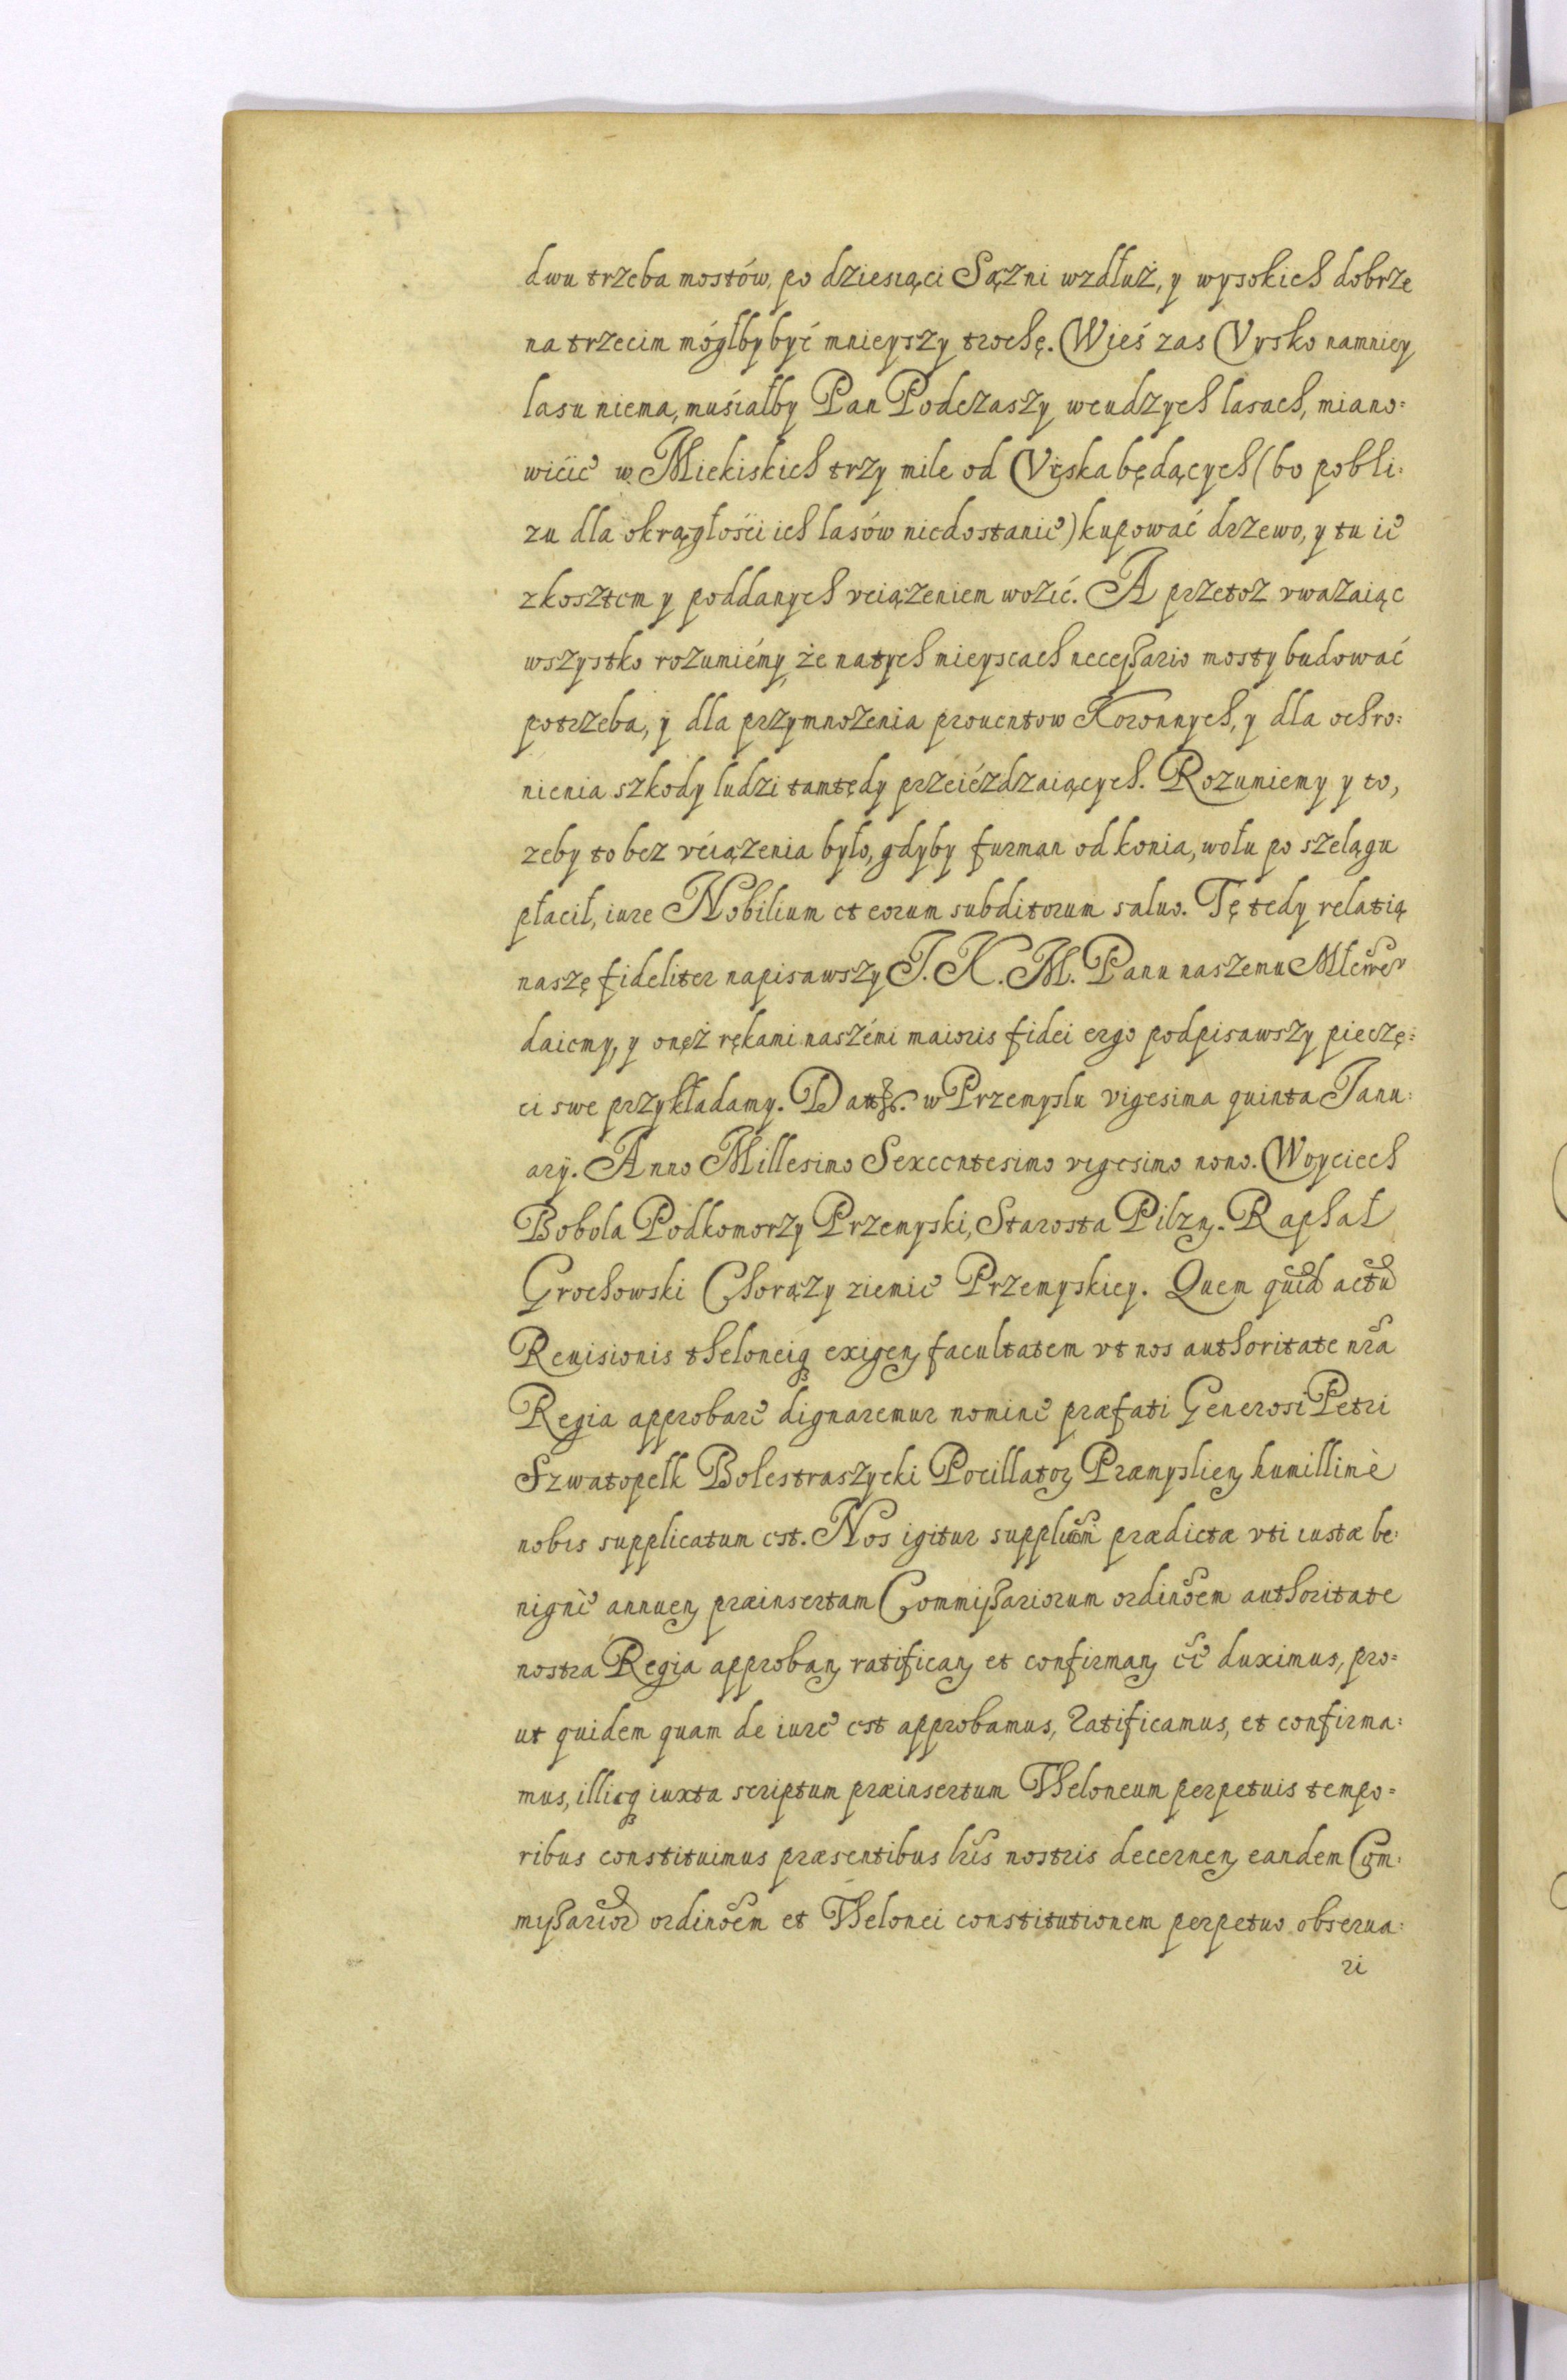 dwu trzeba mostów, po dziesiąci Sązni wzdłuż, y wysokich dobrze
na trzecim mógłby być mnieyszy trochę. Wieś zas Vysko namniey
lasu niema, muśiałby Pan Podczaszy wcudzych lasach, miano=
wićie w Miekiskich trzy mile od Vyska będących (bo pobli=
zu dla okrągłośći ich lasów niedostanie) kupować drzewo, y tu ie
zkosztem y poddanych vciązeniem wozić. A przetoz vwazaiąc
wszystko rozumiémy że natych mieyscach necessario mosty budować
potrzeba, y dla przymnozenia prouentow Koronnych, y dla ochro=
nienia szkody ludzi tamtędy przeiézdzaiących. Rozumiemy y to,
zeby to bez vćiązenia było, gdyby furman od konia, wołu po szelągu
płacił, iure Nobilium et eorum subditorum saluo. Tę tedy relatią
naszę fideliter napisawszy J. K. M. Panu naszemu
daiemy, y onęż rękami naszémi maioris fidei ergo podpisawszy pieczę=
ci swe przykładamy. w Przemyslu vigesima quinta Janu=
arÿ. Anno Millesimo Sexcentesimo vigesimo nono. Woyciech
Bobola Podkomorzy Przemyski, Starosta Pilzn. Raphał
Grochowski Chorązy ziemie Przemyskiey. Quem quid actu
Reuisionis theloneiq exigen facultatem vt nos authoritate nra
Regia approbare dignaremur nomine præfati Generosi Petri
Szwatopelk Bolestraszycki Pocillator Præmyslien humillimè
nobis supplicatum est. Nos igitur supplicõni prædictæ vti iustæ be=
nignè annuen præinsertam Commissariorum ordinõem authoritate
nostra Regia approban ratifican et confirman ee duximus, pro=
ut quidem quam de iure est approbamus, ratificamus, et confirma=
mus, illicq iuxta scriptum præinsertum Theloneum perpetuis tempo=
ribus constituimus præsentibus lris nostris decernen eandem Com=
missarior ordinõem et Thelonei constitutionem perpetuo obserua=
ri